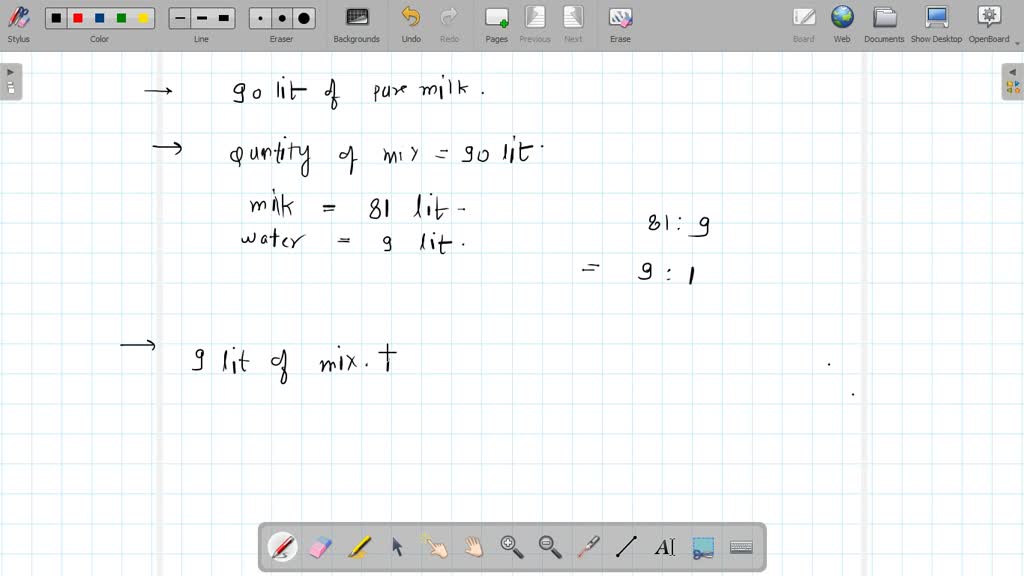 Stylus Color Line Eraser Backgrounds Undo Redo Pages Previous Next Erase Board Web Documents Show Desktop OpenBoard
→ 90 lit of pure milk.
→ quntity of mix = 90 lit.
milk = 81 lit.
water = 9 lit.
81 : 9
= 9 : 1
→ 9 lit of mix. t